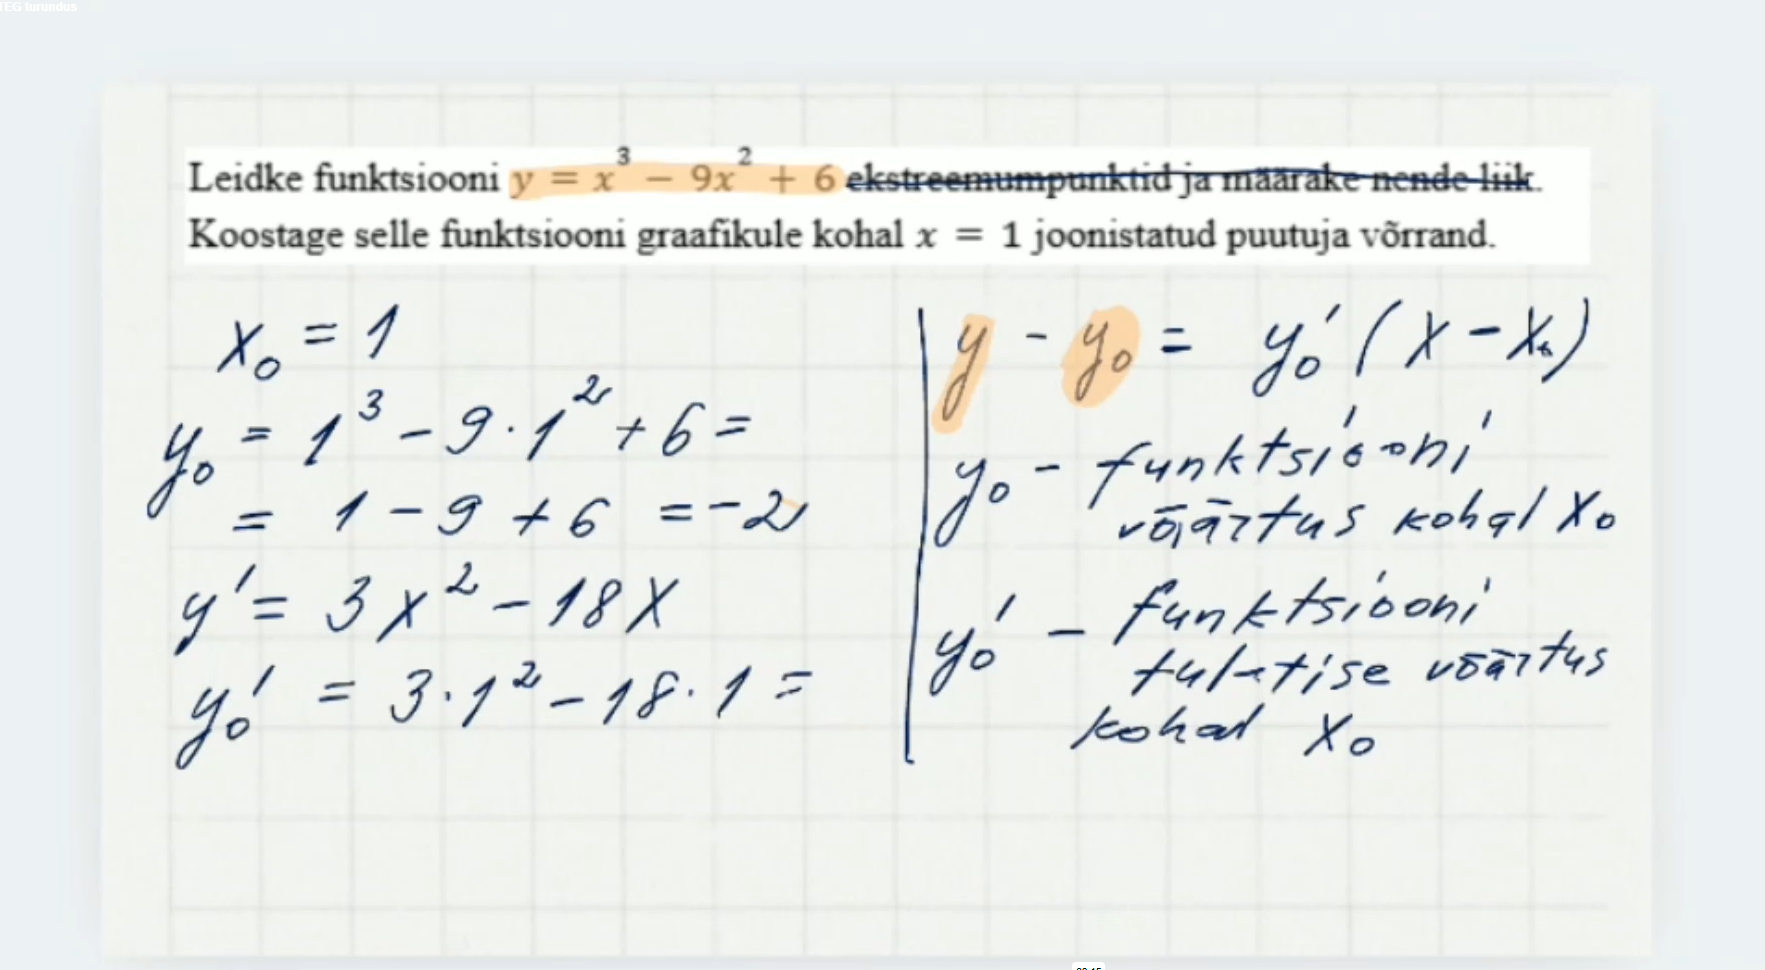 TEG turundus
Leidke funktsiooni y = x³ − 9x² + 6 ekstreemumpunktid ja määrake nende liik.
Koostage selle funktsiooni graafikule kohal x = 1 joonistatud puutuja võrrand.
x₀ = 1
y₀ = 1³ − 9 · 1² + 6 =
= 1 − 9 + 6 = −2
y' = 3x² − 18x
y₀' = 3 · 1² − 18 · 1 =
y − y₀ = y₀' (x − x₀)
y₀ − funktsiooni
väärtus kohal x₀
y₀' − funktsiooni
tuletise väärtus
kohal x₀